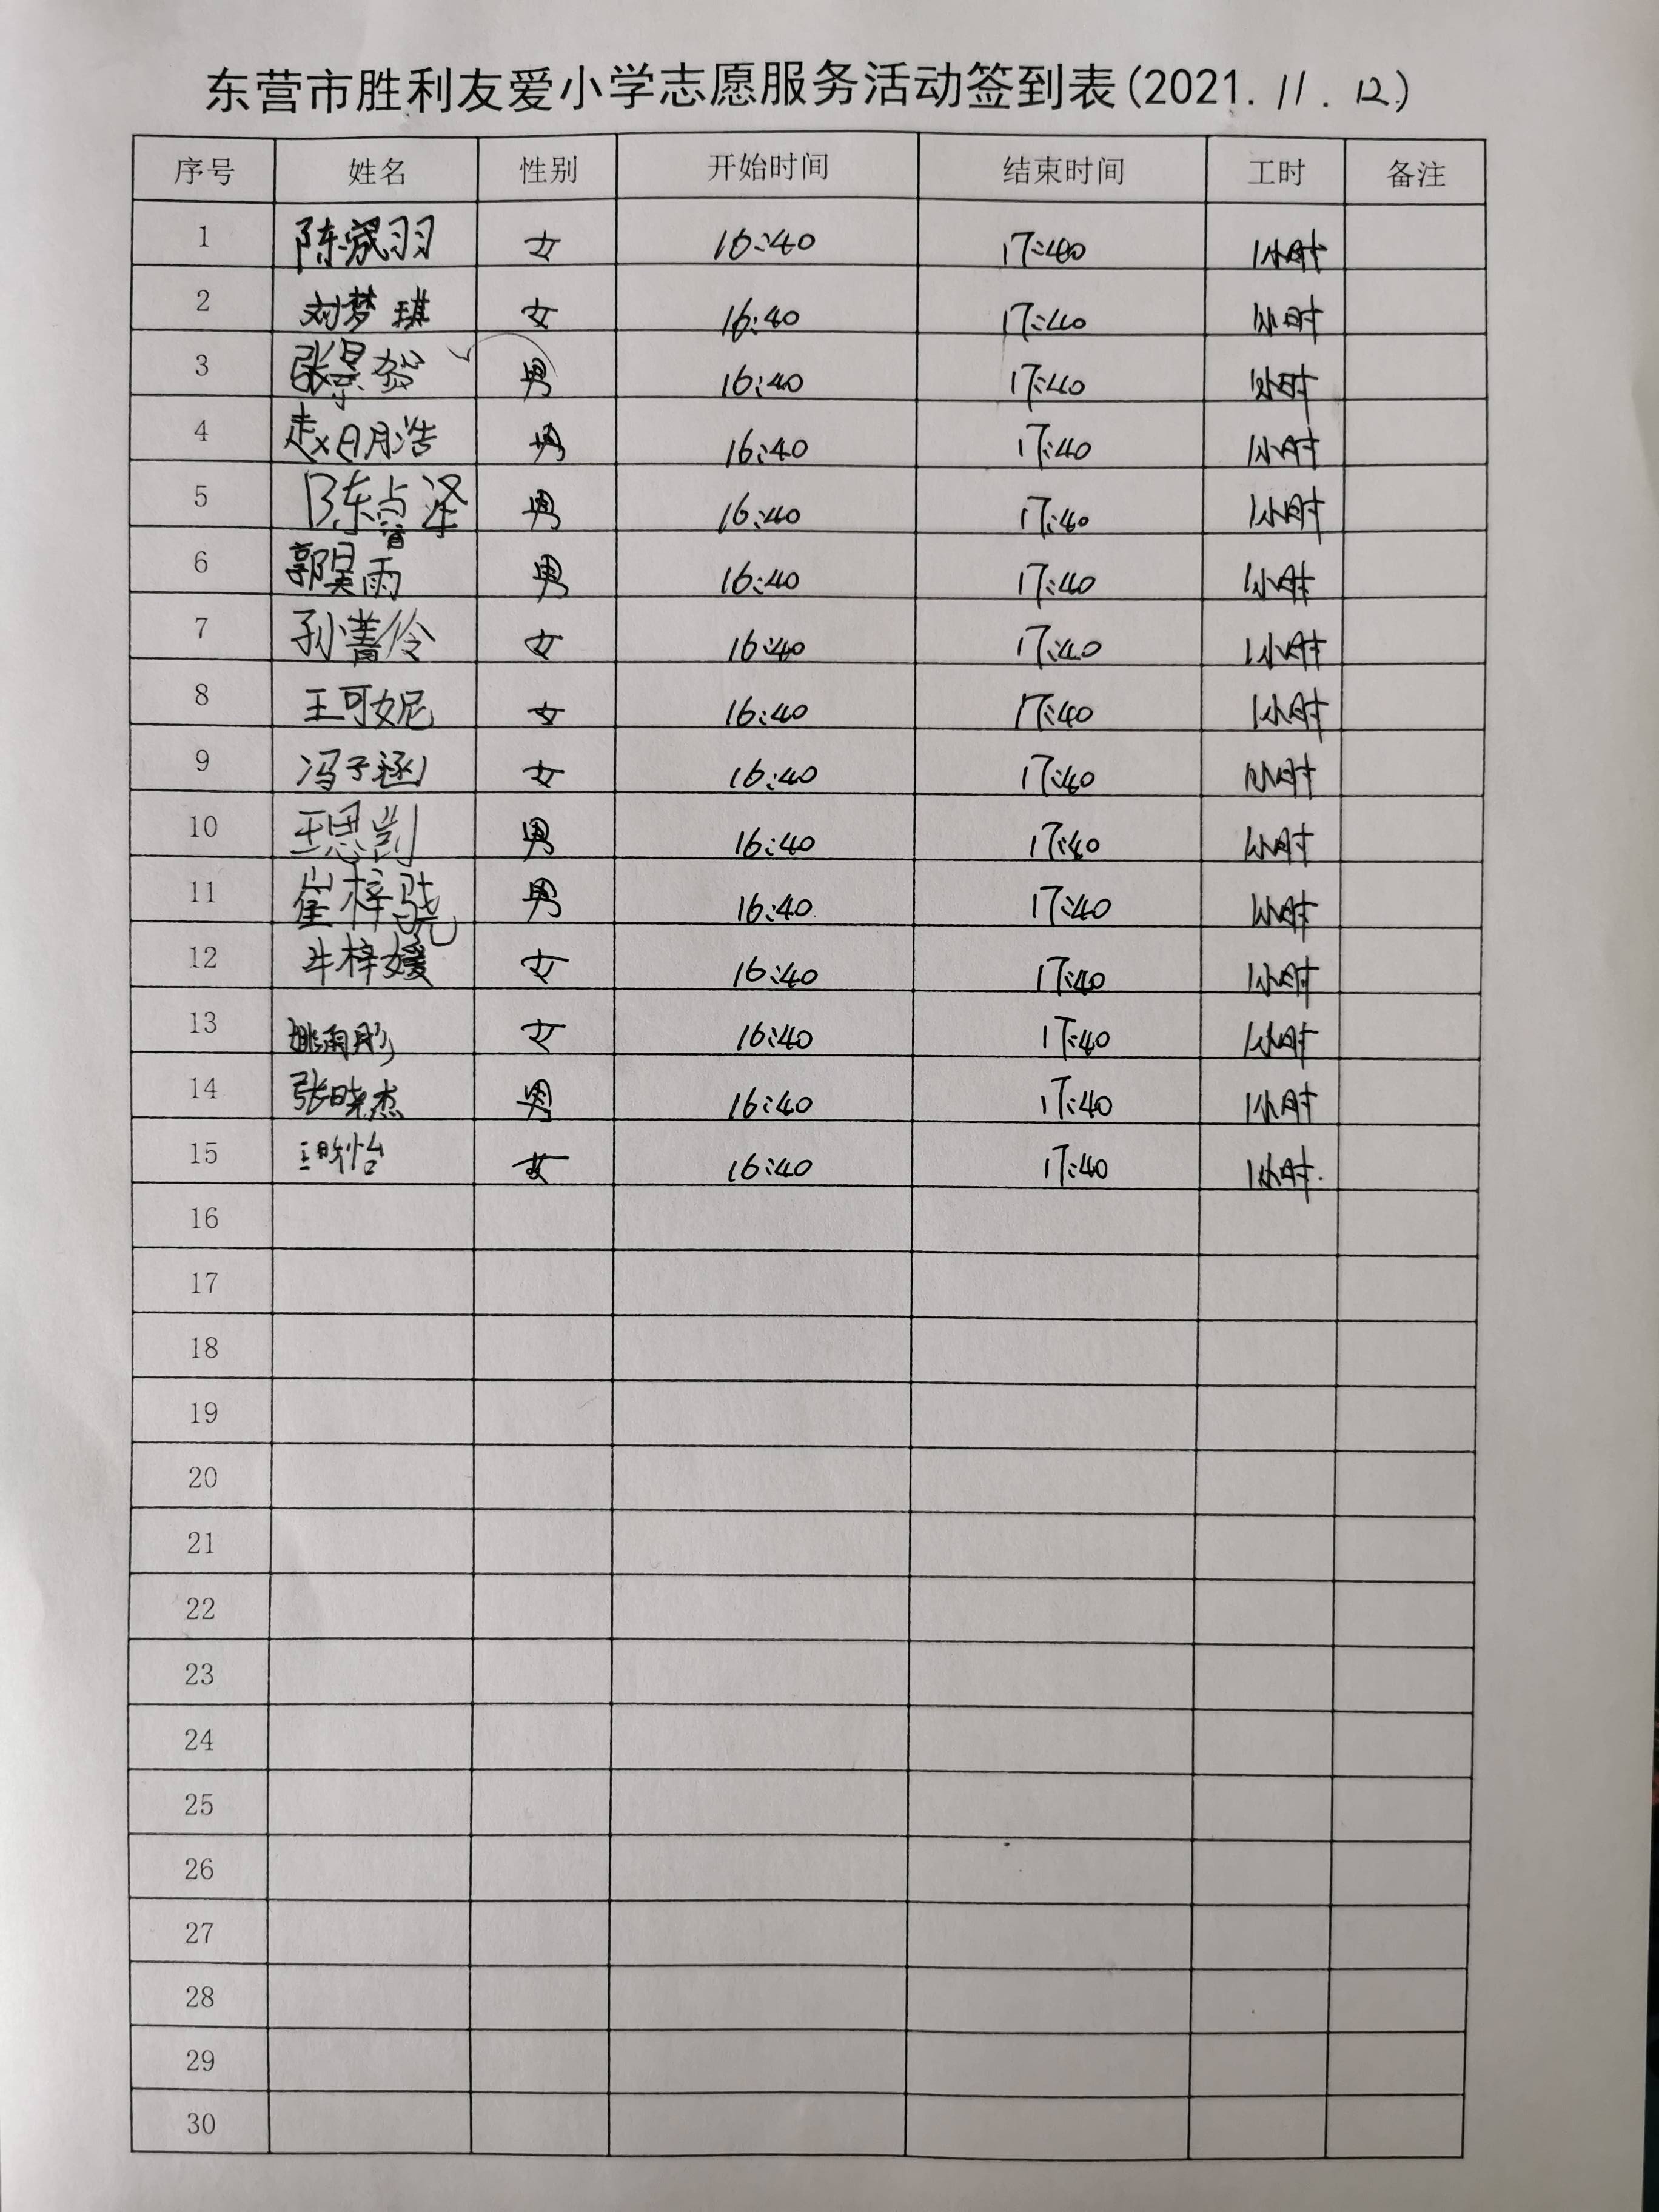 东营市胜利友爱小学志愿服务活动签到表(2021.11.12)
序号 姓名 性别 开始时间 结束时间 工时 备注
1 陈宬羽 女 16:40 17:40 1小时
2 刘梦琪 女 16:40 17:40 1小时
3 张景贺 男 16:40 17:40 1小时
4 赵明浩 男 16:40 17:40 1小时
5 陈睿泽 男 16:40 17:40 1小时
6 郭昊雨 男 16:40 17:40 1小时
7 孙蔷伶 女 16:40 17:40 1小时
8 王可妮 女 16:40 17:40 1小时
9 冯子涵 女 16:40 17:40 1小时
10 王思凯 男 16:40 17:40 1小时
11 崔梓骁 男 16:40 17:40 1小时
12 牛梓媛 女 16:40 17:40 1小时
13 姚雨彤 女 16:40 17:40 1小时
14 张晓杰 男 16:40 17:40 1小时
15 女 16:40 17:40 1小时
16
17
18
19
20
21
22
23
24
25
26
27
28
29
30